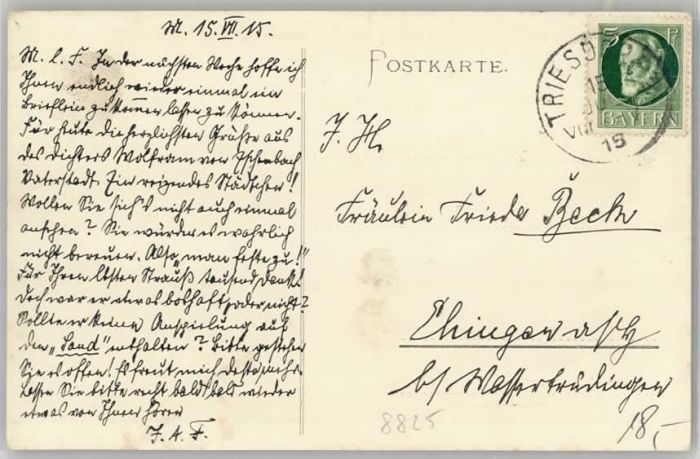 M. 15.VII.15.
M. l. F. In der nächsten Woche hoffe ich
Ihnen endlich wieder einmal ein
Brieflein zukommen lassen zu können.
Für heute die herzlichsten Grüße aus
des Dichters Wolfram von Eschenbach
Vaterstadt. Ein reizendes Städtchen!
Wollen Sie sich's nicht auch einmal
ansehen? Sie würden es wahrlich
nicht bereuen. Also "man feste zu!"
Für Ihren letzten Strauß tausend Dank!
Doch war er etwas boshaft, oder nicht?
Sollte er keine Anspielung auf
den "Land" enthalten? Bitte gestehen
Sie es offen! Es freut mich desto mehr.
Lassen Sie bitte recht bald bald wieder
etwas von Ihnen hören
J. A. F.
POSTKARTE.
5 P
BAYERN
TRIESD
15
VII
15
J. H.
Fräulein Frieda Beck
Ehingen a/H
b/ Wassertrüdingen
8825
18,-